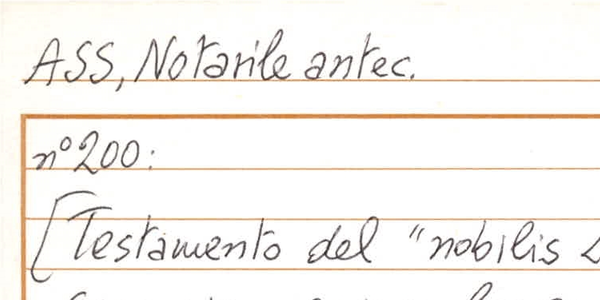 ASS, Notarile antec.
n° 200:
[Testamento del "nobilis